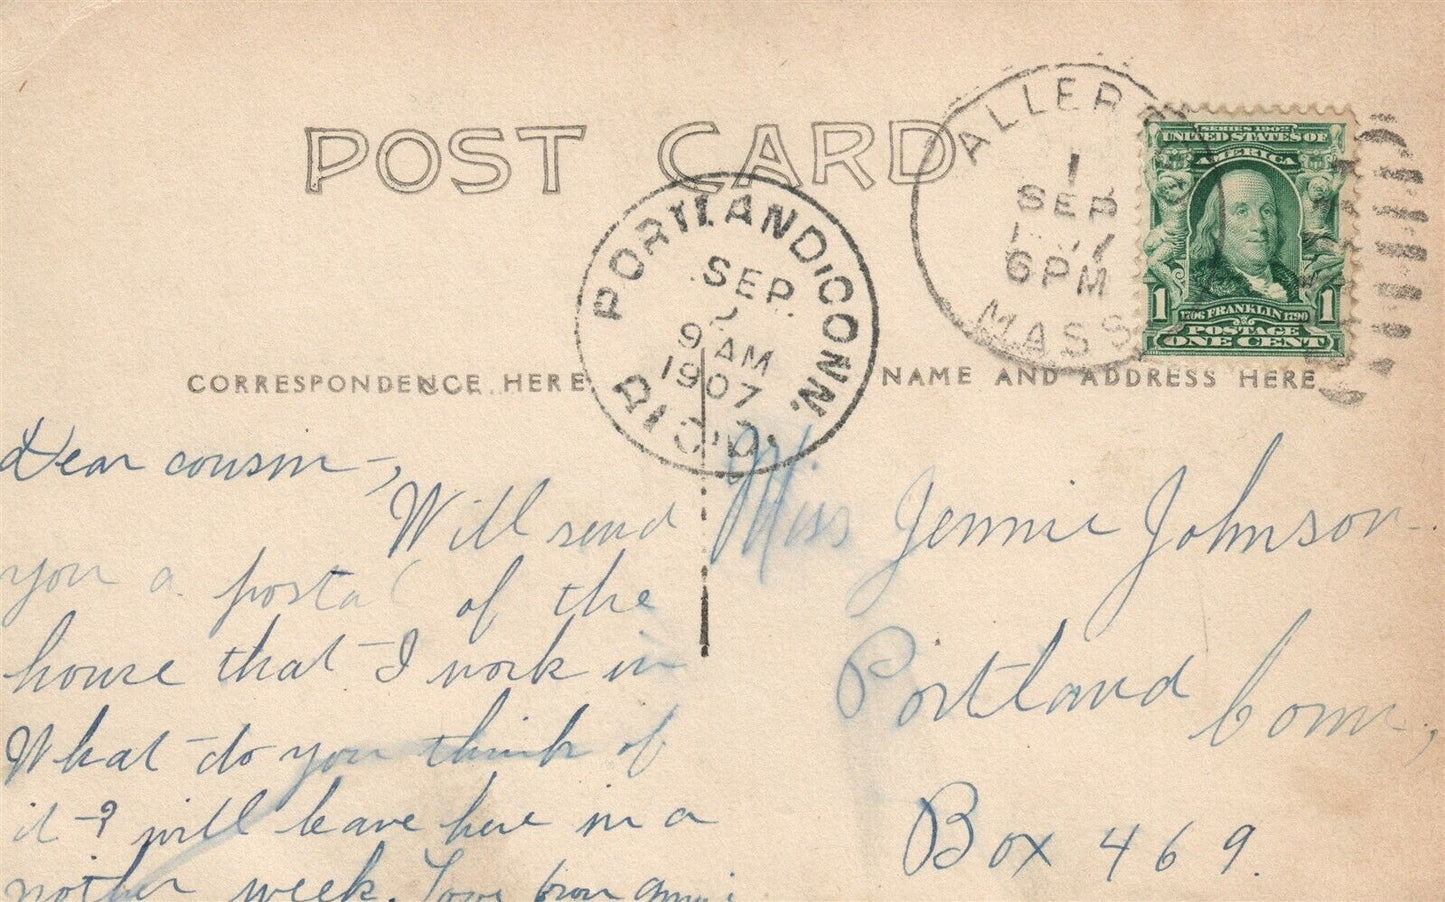 POST CARD
ALLER
1
SEP
6 PM
MASS
SERIES 1902
UNITED STATES OF
AMERICA
1 1
1706 FRANKLIN 1790
POSTAGE
ONE CENT
PORTLAND, CONN.
SEP
9 AM
1907
REC'D.
CORRESPONDENCE HERE
NAME AND ADDRESS HERE
Dear cousin -,
Will send
you a postal of the
house that I work in
What do you think of
it? will leave here in a
nother week. Love from
Miss Jennie Johnson
Portland Conn,
Box 469.